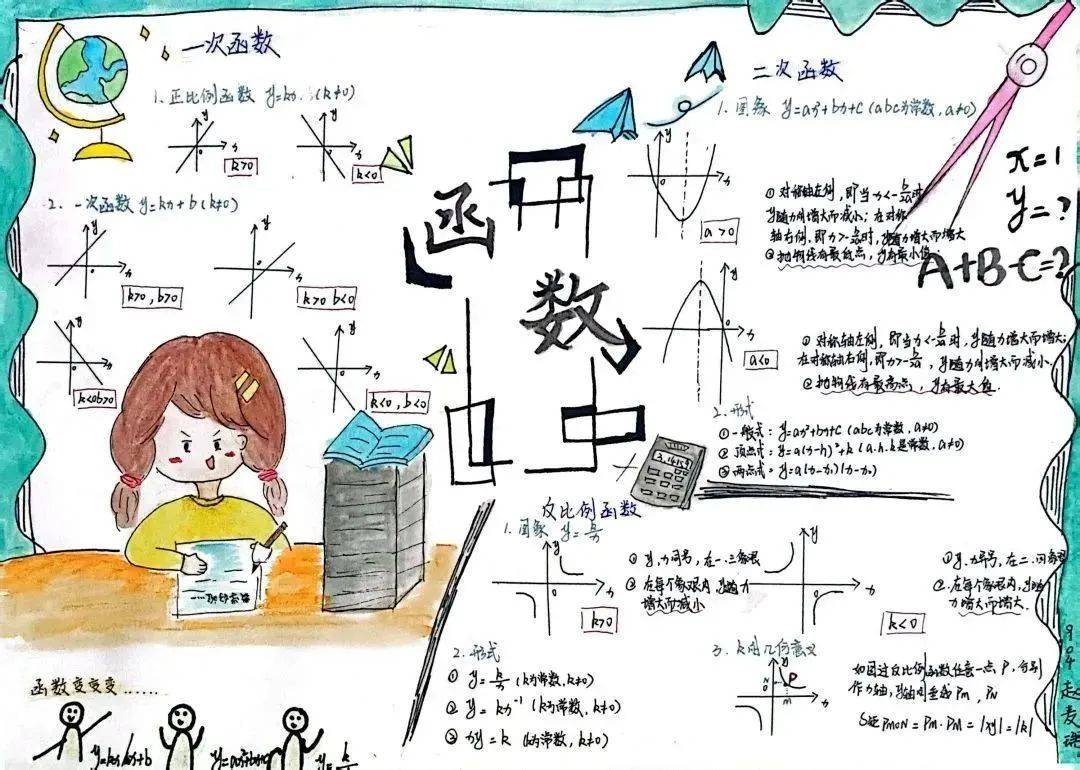 一次函数
1. 正比例函数 y=kx (k≠0)
y
x
0
k>0
y
x
0
k<0
2. 一次函数 y=kx+b (k≠0)
y
x
0
k>0, b>0
y
x
0
k>0 b<0
y
x
0
k<0 b>0
y
x
0
k<0, b<0
函
数
二次函数
1. 图象 y=ax²+bx+c (abc为常数, a≠0)
y
x
0
a>0
① 对称轴左侧, 即当x<-b/2a时
y随x的增大而减小; 在对称
轴右侧, 即x>-b/2a时, y随x增大而增大
② 抛物线有最低点, y有最小值
x=1
y=?
A+B-C=?
y
x
0
a<0
① 对称轴左侧, 即当x<-b/2a时, y随x增大而增大;
在对称轴右侧, 即x>-b/2a, y随x的增大而减小.
② 抛物线有最高点, y有最大值.
2. 形式
① 一般式: y=ax²+bx+c (abc为常数, a≠0)
② 顶点式: y=a(x-h)²+k (a.h.k是常数, a≠0)
③ 两点式: y=a(x-x₁)(x-x₂)
反比例函数
1. 图象 y=k/x
y
x
0
k>0
① y, x同号, 在一.三象限
② 在每个象限内, y随x
增大而减小
y
x
0
k<0
① y, x异号, 在二.四象限
② 在每个象限内, y随
x增大而增大.
2. 形式
① y=k/x (k为常数, k≠0)
② y=kx⁻¹ (k为常数, k≠0)
③ xy=k (k为常数, k≠0)
3. k的几何意义
y
N
P
0
M
x
如图过反比例函数任意一点P, 分别
作x轴, y轴的垂线PM, PN
S矩PMON=PM·PN=|xy|=|k|
函数变变变……
y=kx+b
y=ax²+bx+c
y=k/x
904